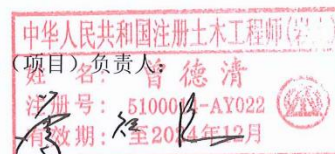 中华人民共和国注册土木工程师(岩土)
(项目)负责人:
姓 名: 曾德清
注册号: 5100014-AY022
有效期: 至2024年12月